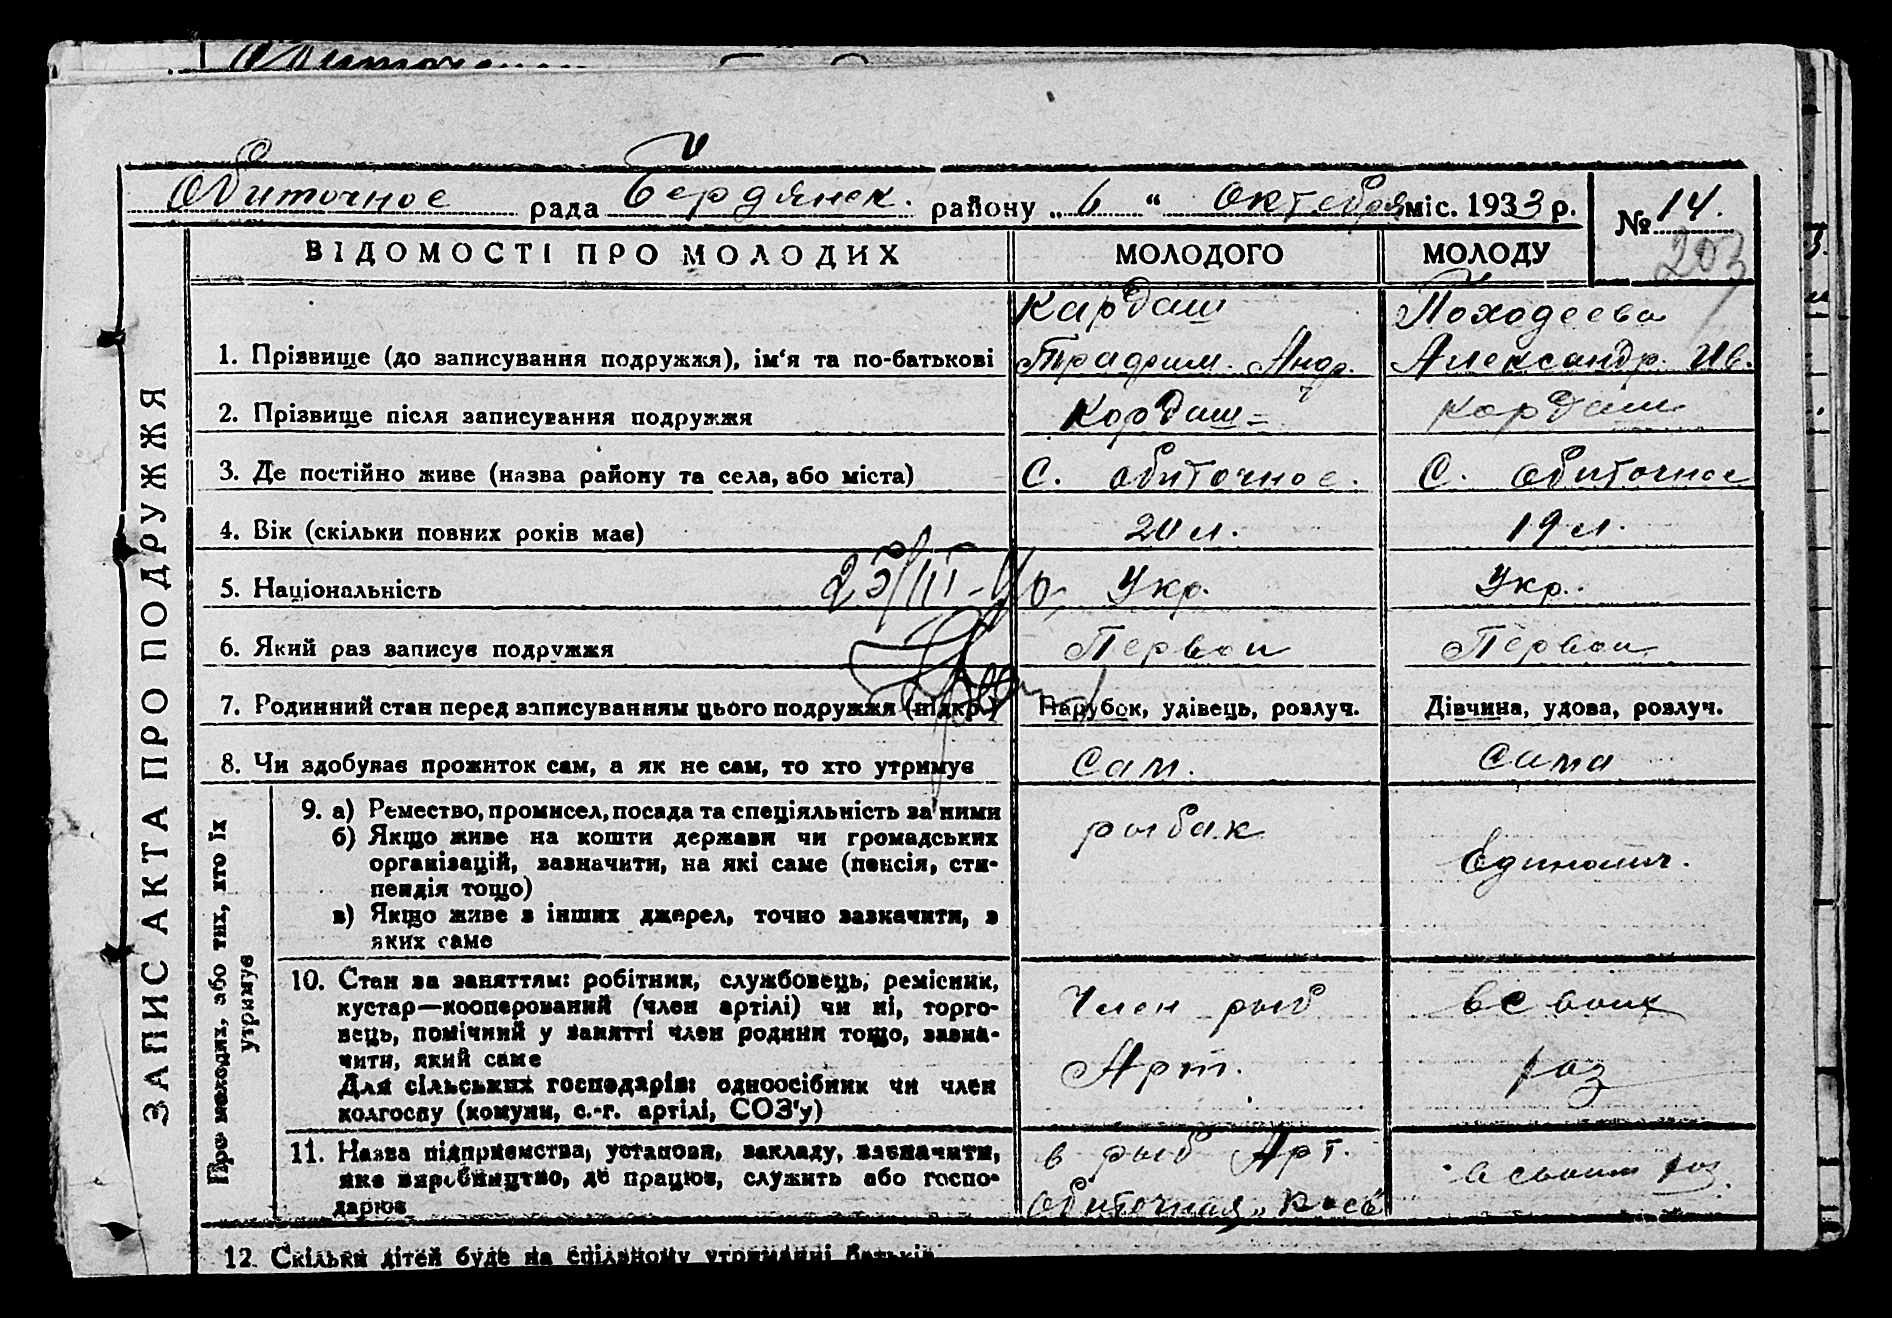 Обиточное рада Бердянск. району „6“ Октября міс. 1933 р. № 14.
203
ВІДОМОСТІ ПРО МОЛОДИХ МОЛОДОГО МОЛОДУ
ЗАПИС АКТА ПРО ПОДРУЖЖЯ
Кардаш Походеева
1. Прізвище (до записування подружжя), ім'я та по-батькові Андр. Александр. Ив.
2. Прізвище після записування подружжя Кардаш Кардаш
3. Де постійно живе (назва району та села, або міста) С. Обиточное. С. Обиточное
4. Вік (скільки повних років має) 20 л. 19 л.
5. Національність Укр. Укр.
6. Який раз записує подружжя Первои Первои
7. Родинний стан перед записуванням цього подружжя (підкр.) Парубок, удівець, розлуч. Дівчина, удова, розлуч.
8. Чи здобуває прожиток сам, а як не сам, то хто утримує Сам. Сама
Про молодих, або тих, хто їх
утримує
9. а) Ремество, промисел, посада та спеціяльність за ними рыбак
б) Якщо живе на кошти держави чи громадських Единолич.
організацій, зазначити, на які саме (пенсія, сти-
пендія тощо)
в) Якщо живе з інших джерел, точно зазначити, з
яких саме
10. Стан за заняттям: робітник, службовець, ремісник, Член рыб
кустар—кооперований (член артілі) чи ні, торго-
вець, помічний у занятті член родини тощо, зазна-
чити, який саме Арт.
Для сільських господарів: одноосібник чи член
колгоспу (комуни, с.-г. артілі, СОЗ'у)
11. Назва підприємства, установи, закладу, зазначити, в рыб Арт.
яке виробництво, де працює, служить або госпо- в своим
дарює Обиточная
12. Скільки дітей буде на спільному утриманні батьків